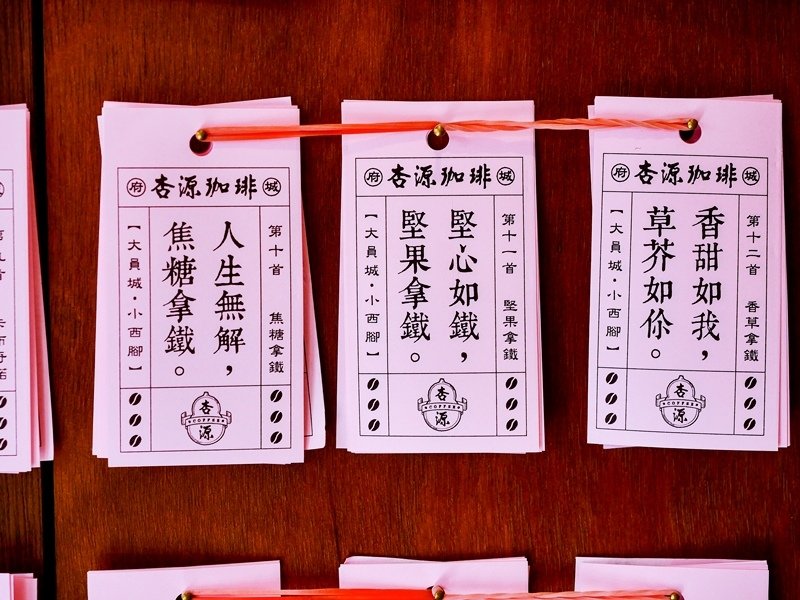 府 杏源珈琲 城
第十首 焦糖拿鐵
人生無解，
焦糖拿鐵。
【大員城・小西腳】
杏
COFFEE
源
府 杏源珈琲 城
第十一首 堅果拿鐵
堅心如鐵，
堅果拿鐵。
【大員城・小西腳】
杏
COFFEE
源
府 杏源珈琲 城
第十二首 香草拿鐵
香甜如我，
草芥如你。
【大員城・小西腳】
杏
COFFEE
源